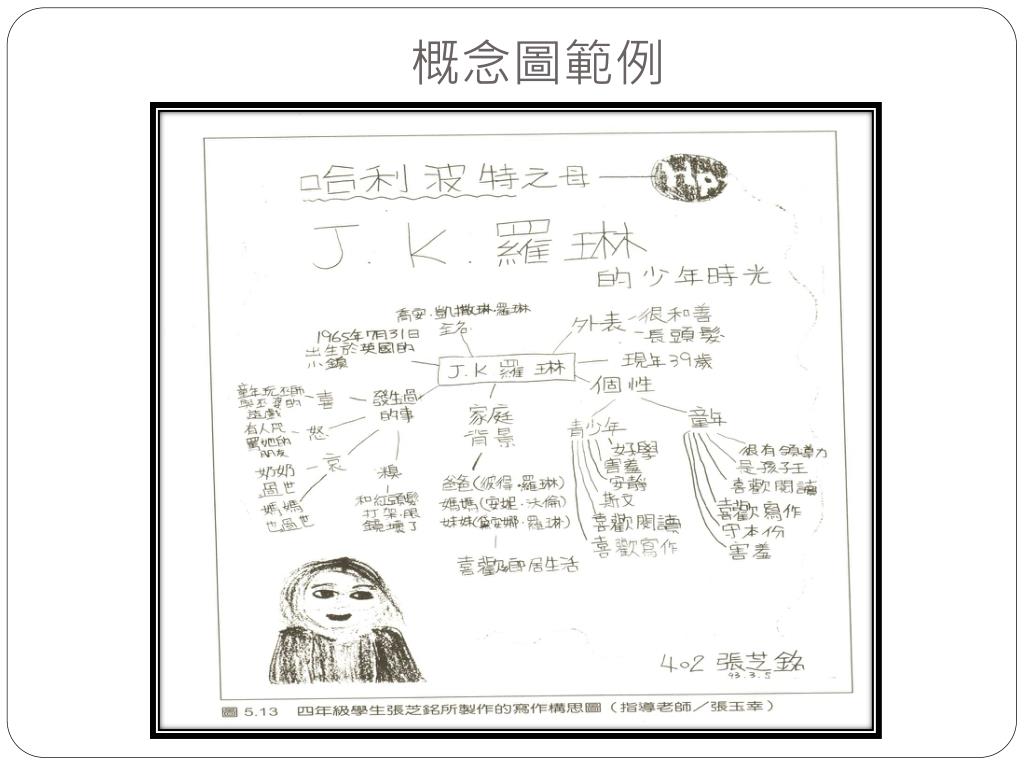 概念圖範例
哈利波特之母
HP
J.K.羅琳
的少年時光
喬安·凱撒琳·羅琳
全名
1965年7月31日
出生於英國的
小鎮
外表
很和善
長頭髮
J.K 羅琳
現年39歲
個性
發生過
的事
喜
童年玩巫師
與巫婆的
遊戲
怒
有人咒
罵她的
朋友
哀
奶奶
過世
媽媽
也過世
糗
和紅頭髮
打架·眼
鏡壞了
家庭
背景
爸爸(彼得·羅琳)
媽媽(安妮·沃倫)
喜歡鄉居生活
青少年
好學
害羞
安靜
斯文
喜歡閱讀
喜歡寫作
童年
很有領導力
是孩子王
喜歡閱讀
喜歡寫作
守本份
害羞
402 張芝銘
93.3.5
圖 5.13 四年級學生張芝銘所製作的寫作構思圖（指導老師／張玉幸）